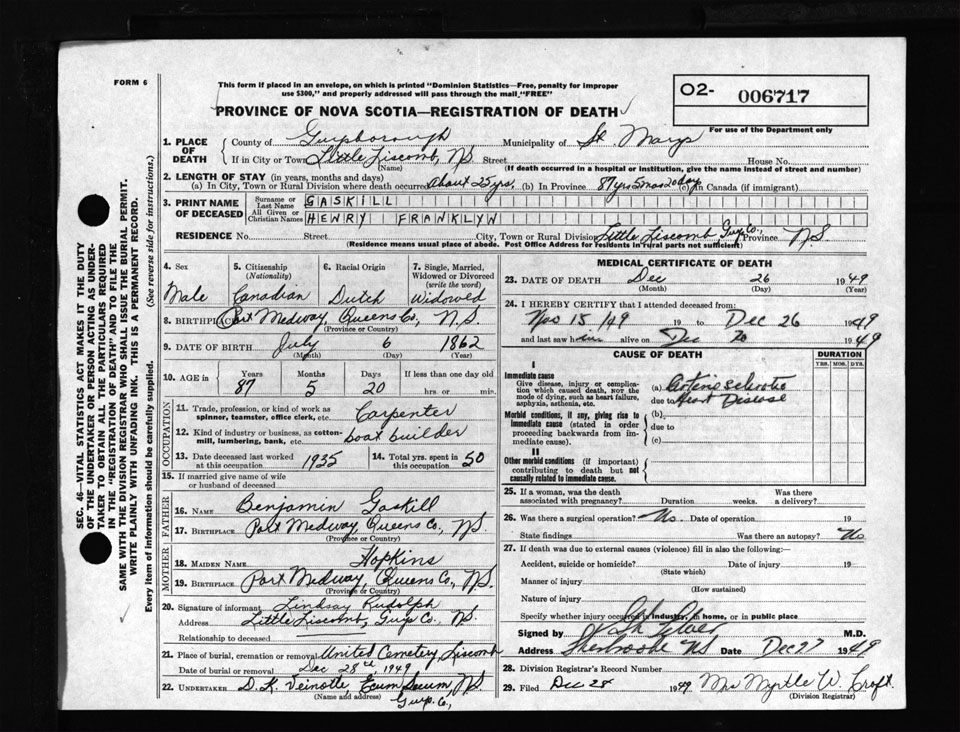 FORM 6
This form if placed in an envelope, on which is printed "Dominion Statistics—Free, penalty for improper
use $300," and properly addressed will pass through the mail "FREE"
PROVINCE OF NOVA SCOTIA—REGISTRATION OF DEATH
O2- 006717
For use of the Department only
1. PLACE OF DEATH
County of Guysborough Municipality of St. Marys
If in City or Town Little Liscomb, N.S. Street House No.
(Name) (If death occurred in a hospital or institution, give the name instead of street and number)
2. LENGTH OF STAY (in years, months and days)
(a) In City, Town or Rural Division where death occurred About 25 yrs. (b) In Province 87 yrs 5 mos 20 days (c) in Canada (if immigrant)
3. PRINT NAME OF DECEASED
Surname or Last Name GASKILL
All Given or Christian Names HENRY FRANKLYN
RESIDENCE No. Street City, Town or Rural Division Little Liscomb, Guys Co., Province N.S.
(Residence means usual place of abode. Post Office Address for residents in rural parts not sufficient)
4. Sex
Male
5. Citizenship (Nationality)
Canadian
6. Racial Origin
Dutch
7. Single, Married, Widowed or Divorced (write the word)
Widowed
8. BIRTHPLACE Port Medway, Queens Co., N.S.
(Province or Country)
9. DATE OF BIRTH July 6 1862
(Month) (Day) (Year)
10. AGE in Years Months Days If less than one day old
87 5 20 hrs. or min.
OCCUPATION
11. Trade, profession, or kind of work as spinner, teamster, office clerk, etc. Carpenter
12. Kind of industry or business, as cotton-mill, lumbering, bank, etc. boat builder
13. Date deceased last worked at this occupation 1935
14. Total yrs. spent in this occupation 50
15. If married give name of wife or husband of deceased
FATHER
16. NAME Benjamin Gaskill
17. BIRTHPLACE Port Medway, Queens Co., N.S.
(Province or Country)
MOTHER
18. MAIDEN NAME Hopkins
19. BIRTHPLACE Port Medway, Queens Co., N.S.
(Province or Country)
20. Signature of informant Lindsay Rudolph
Address Little Liscomb, Guys Co., N.S.
Relationship to deceased
21. Place of burial, cremation or removal United Cemetery, Liscomb
Date of burial or removal Dec 28th 1949
22. UNDERTAKER D. K. Veinotte, Ecum Secum, N.S.
(Name and address) Guys. Co.,
MEDICAL CERTIFICATE OF DEATH
23. DATE OF DEATH Dec 26 1949
(Month) (Day) (Year)
24. I HEREBY CERTIFY that I attended deceased from:
Nov 15/49 19 to Dec 26 1949
and last saw him alive on Dec 20 1949
CAUSE OF DEATH
DURATION
YRS. MOS. DYS.
I
Immediate cause
Give disease, injury or complication which caused death, NOT the mode of dying, such as heart failure, asphyxia, asthenia, etc.
(a) Arteriosclerotic
due to Heart Disease
Morbid conditions, if any, giving rise to immediate cause (stated in order proceeding backwards from immediate cause).
(b)
due to
(c)
II
Other morbid conditions (if important) contributing to death but not causally related to immediate cause.
25. If a woman, was the death associated with pregnancy? Duration weeks. Was there a delivery?
26. Was there a surgical operation? No Date of operation 19
State findings Was there an autopsy? No
27. If death was due to external causes (violence) fill in also the following:—
Accident, suicide or homicide? Date of injury 19
(State which)
Manner of injury
(How sustained)
Nature of injury
Specify whether injury occurred in industry, in home, or in public place
Signed by M.D.
Address Sherbrooke NS Date Dec 27 1949
28. Division Registrar's Record Number
29. Filed Dec 28 1949 Mrs Myrtle W. Croft.
(Division Registrar)
SEC. 46—VITAL STATISTICS ACT MAKES IT THE DUTY
OF THE UNDERTAKER OR PERSON ACTING AS UNDER-
TAKER TO OBTAIN ALL THE PARTICULARS REQUIRED
IN THE "REGISTRATION OF DEATH" AND TO FILE THE
SAME WITH THE DIVISION REGISTRAR WHO SHALL ISSUE THE BURIAL PERMIT.
WRITE PLAINLY WITH UNFADING INK. THIS IS A PERMANENT RECORD.
Every item of information should be carefully supplied. (See reverse side for instructions.)